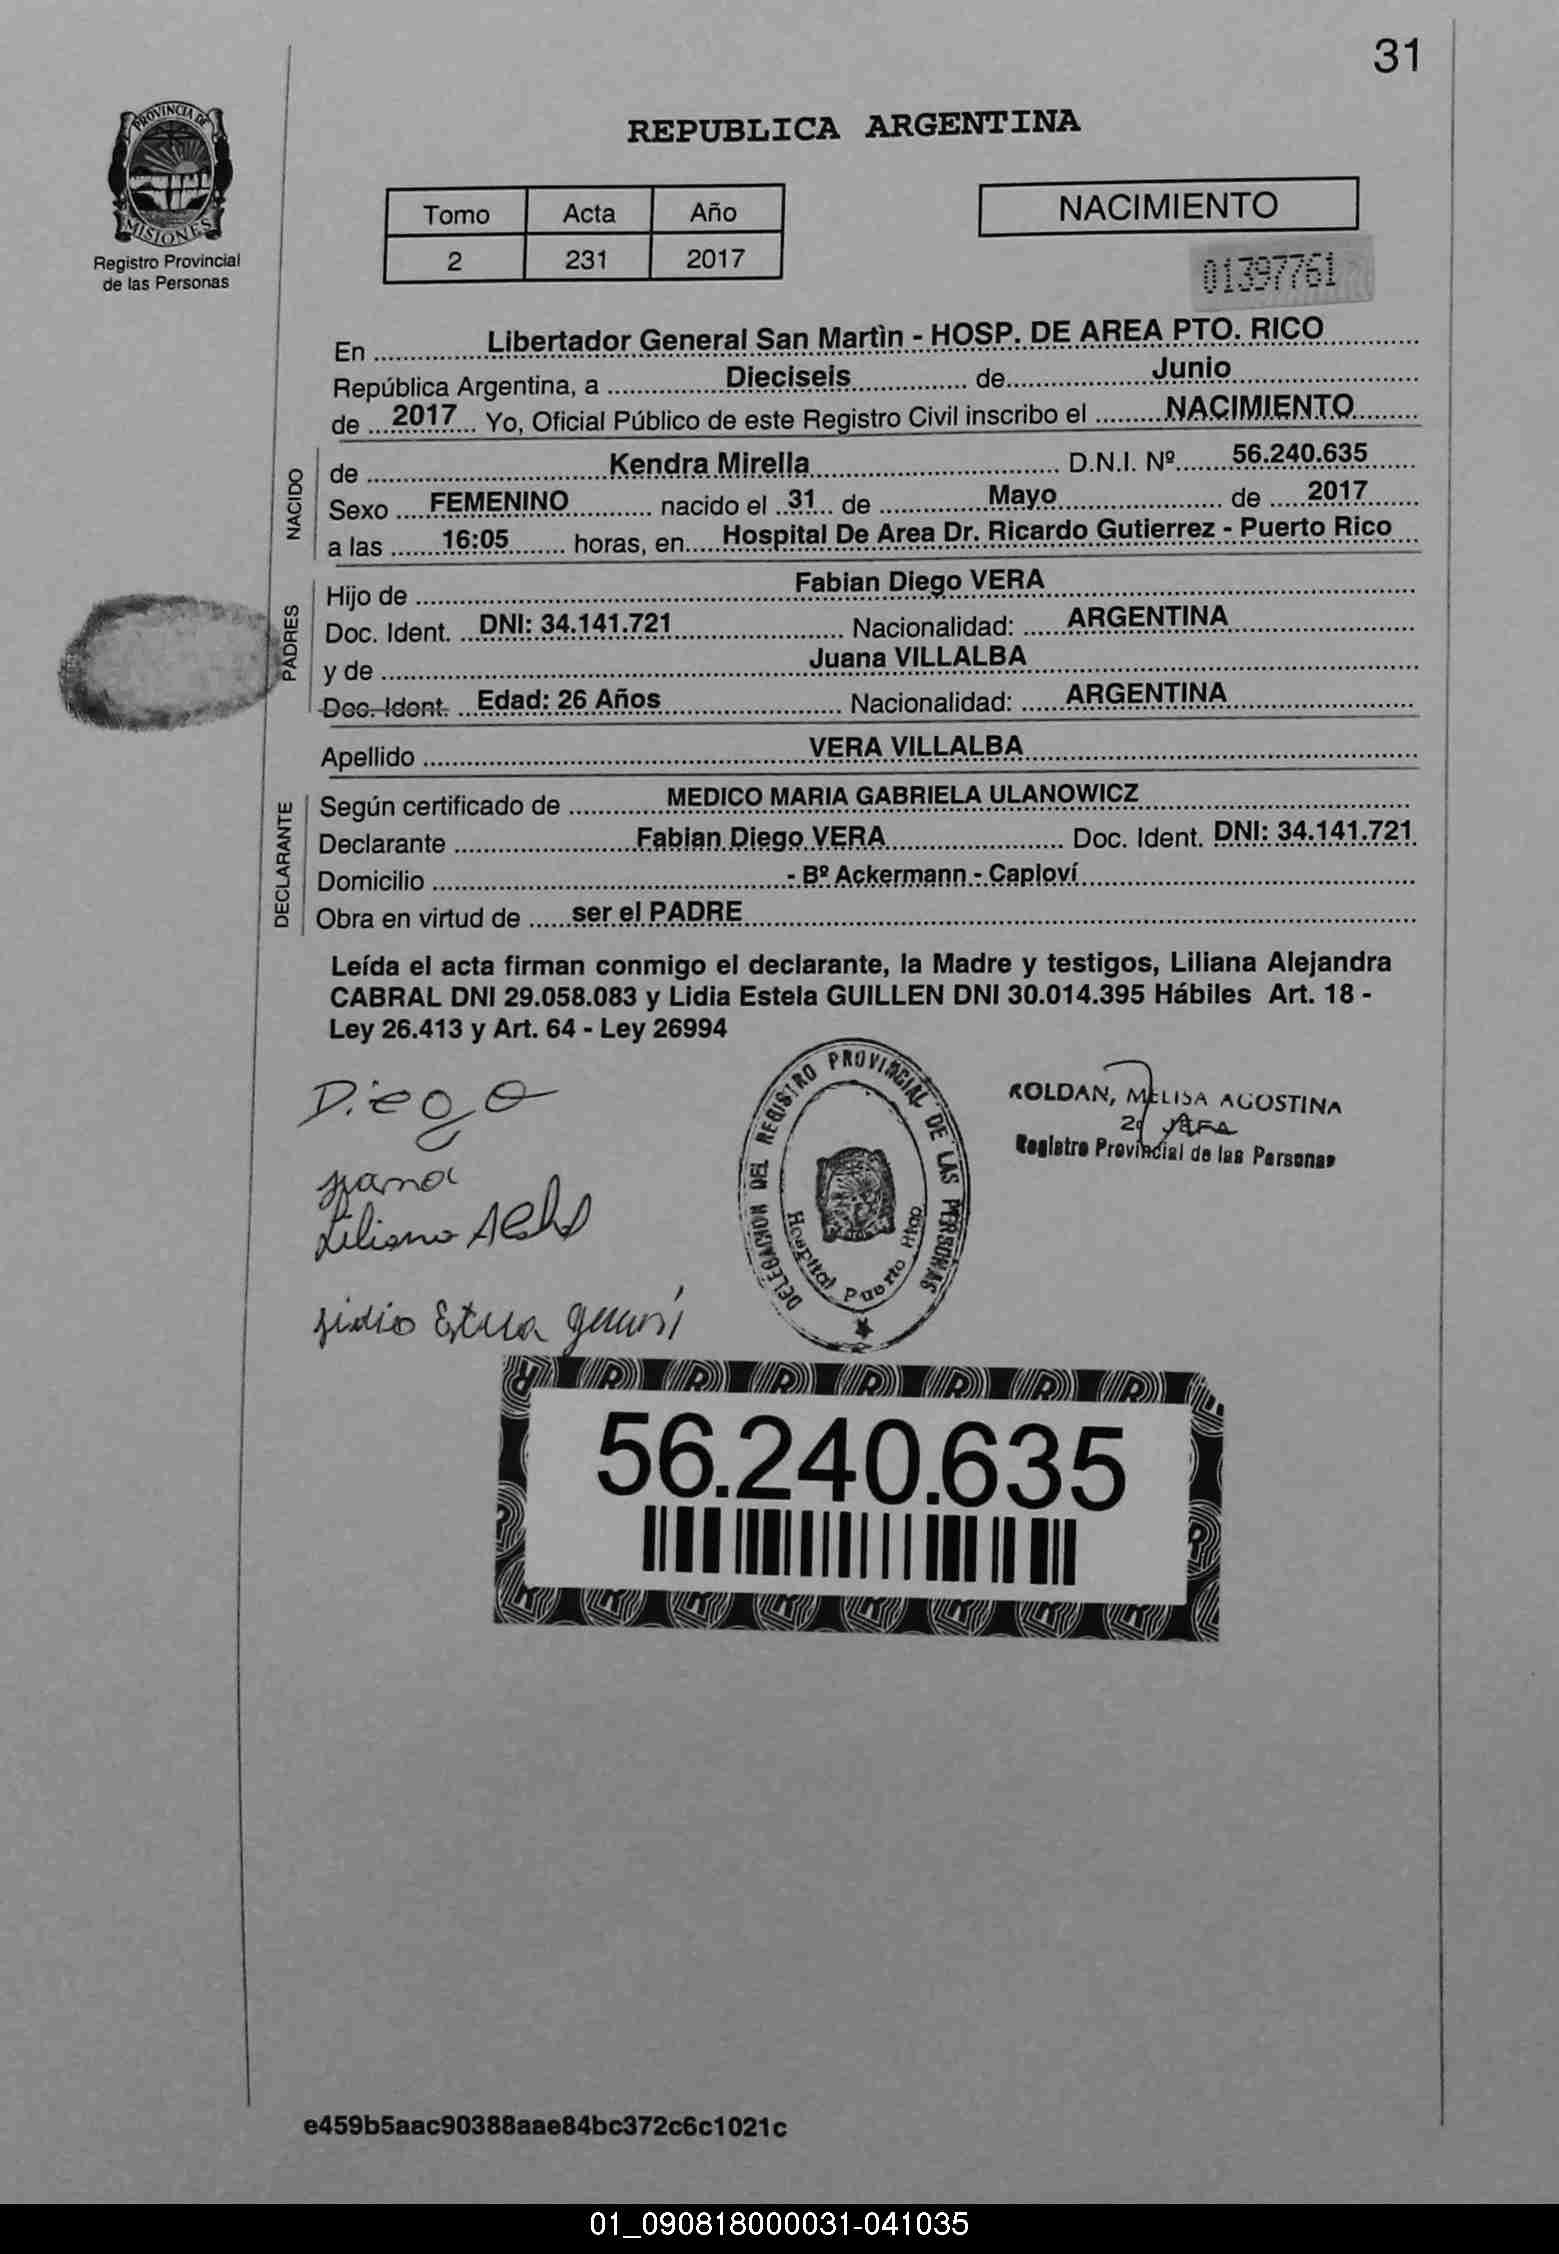 31
PROVINCIA DE
MISIONES
Registro Provincial
de las Personas
REPUBLICA ARGENTINA
Tomo Acta Año
2 231 2017
NACIMIENTO
01397761
En ............... Libertador General San Martìn - HOSP. DE AREA PTO. RICO
República Argentina, a ............... Dieciseis ............... de ............... Junio
de .... 2017 .... Yo, Oficial Público de este Registro Civil inscribo el .......... NACIMIENTO
NACIDO
de ............... Kendra Mirella ............... D.N.I. Nº ........ 56.240.635
Sexo .... FEMENINO ............ nacido el .. 31 .. de ............... Mayo ............... de ..... 2017
a las ....... 16:05 ....... horas, en ..... Hospital De Area Dr. Ricardo Gutierrez - Puerto Rico
PADRES
Hijo de ............... Fabian Diego VERA
Doc. Ident. ... DNI: 34.141.721 ............... Nacionalidad: ...... ARGENTINA
y de ............... Juana VILLALBA
Doc. Ident. ... Edad: 26 Años ............... Nacionalidad: ...... ARGENTINA
Apellido ............... VERA VILLALBA
DECLARANTE
Según certificado de ............. MEDICO MARIA GABRIELA ULANOWICZ
Declarante ............... Fabian Diego VERA ............... Doc. Ident. DNI: 34.141.721
Domicilio ............... - Bº Ackermann - Caploví
Obra en virtud de ...... ser el PADRE
Leída el acta firman conmigo el declarante, la Madre y testigos, Liliana Alejandra
CABRAL DNI 29.058.083 y Lidia Estela GUILLEN DNI 30.014.395 Hábiles Art. 18 -
Ley 26.413 y Art. 64 - Ley 26994
Diego
DELEGACION DEL REGISTRO PROVINCIAL DE LAS PERSONAS
Hospital Puerto Rico
ROLDAN, MELISA AGOSTINA
2ª JEFA
Registro Provincial de las Personas
56.240.635
e459b5aac90388aae84bc372c6c1021c
01_090818000031-041035